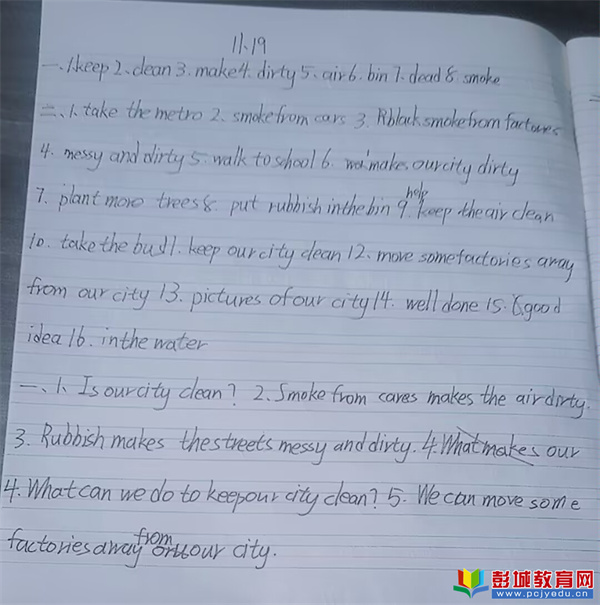 11.19
一、1.keep 2、clean 3. make 4. dirty 5、air 6. bin 7. dead 8. smoke
二、1. take the metro 2. smoke from cars 3. black smoke from
4. messy and dirty 5. walk to school 6. make our city dirty
help
7. plant more trees 8. put rubbish in the bin 9. keep the air clean
10. take the bus 11. keep our city clean 12. move some factories away
from our city 13. pictures of our city 14. well done 15. good
idea 16. in the water
一、1. Is our city clean? 2. Smoke from cares makes the air dirty.
3. Rubbish makes the streets messy and dirty. 4. What makes our
4. What can we do to keep our city clean? 5. We can move some
from
factories away our city.
彭城教育网
www.pcjyedu.cn